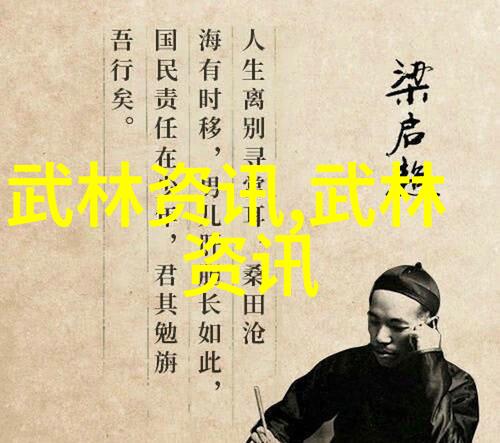 梁启超
人生离别寻常耳，桑田沧
海有时移，男儿肝胆长如此，
国民责任在少年，君其勉旃
吾行矣。
武林资讯,武林
资讯